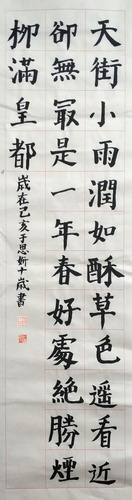 天街小雨潤如酥草色遙看近
卻無最是一年春好處絕勝煙
柳滿皇都
歲在己亥于思妡十歲書